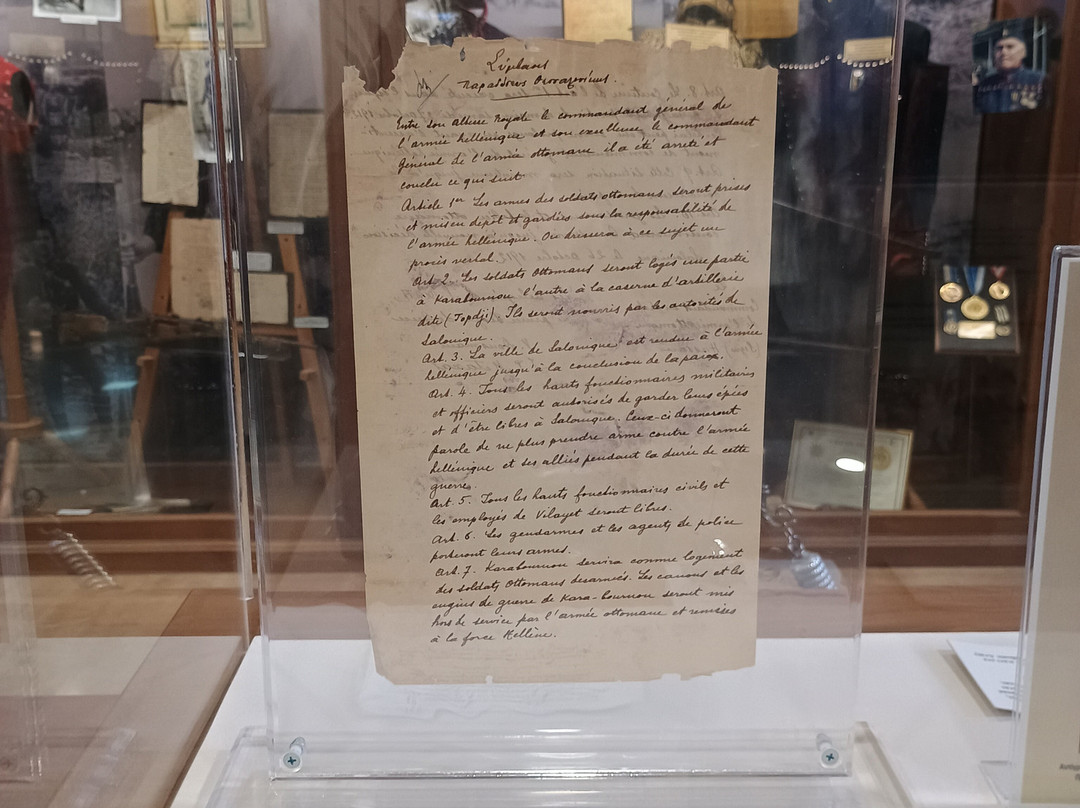 Entre son altesse royale le commandant général de
l'armée hellénique et son excellence le commandant
Général de l'armée ottomane il a été arrêté et
conclu ce qui suit
Article 1er Les armes des soldats ottomans seront prises
et mis en depôt et gardées sous la responsabilité de
l'armée hellénique. On dressera à ce sujet un
procès verbal.
Art. 2. Les soldats Ottomans seront logés une partie
à Karabournou l'autre à la caserne d'artillerie
dite (Topdji). Ils seront nourris par les autorités de
Salonique.
Art. 3. La ville de Salonique est rendue à l'armée
hellénique jusqu'à la conclusion de la paix.
Art. 4. Tous les hauts fonctionnaires militaires
et officiers seront autorisés de garder leurs épées
et d'être libres à Salonique. Ceux-ci donneront
parole de ne plus prendre arme contre l'armée
hellénique et ses alliés pendant la durée de cette
guerre.
Art 5. Tous les hauts fonctionnaires civils et
les employés de Vilayet seront libres.
Art. 6. Les gendarmes et les agents de police
porteront leurs armes.
Art. 7. Karabournou servira comme logement
des soldats Ottomans desarmés. Les canons et les
engins de guerre de Kara-bournou seront mis
hors de service par l'armée ottomane et remises
à la force Hellène.